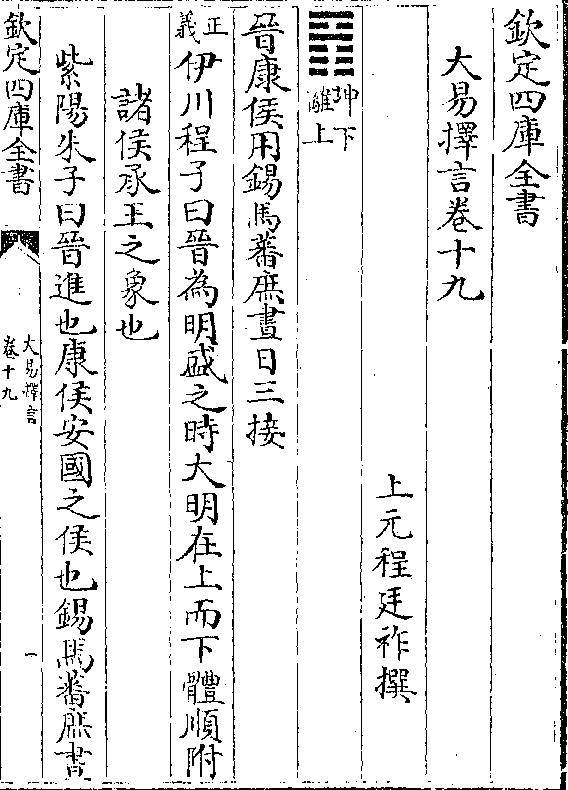 欽定四庫全書
大易擇言卷十九
上元程廷祚撰
䷢坤下離上
晉康侯用錫馬蕃庶晝日三接
正義伊川程子曰晉為明盛之時大明在上而下體順附
諸侯承王之象也
紫陽朱子曰晉進也康侯安國之侯也錫馬蕃庶書
欽定四庫全書
大易擇言
卷十九
一